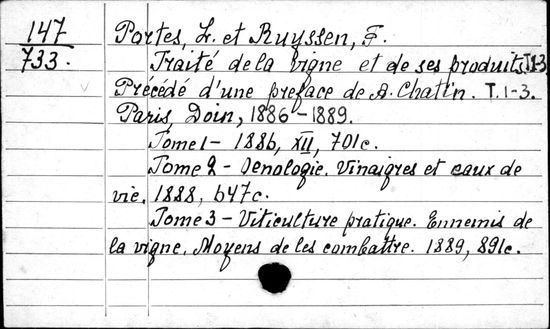 147
733.
Portes, L. et Ruyssen, F.
Traité de la vigne et de ses produits. T.1-3
Précédé d'une preface de A. Chatin. T.1-3.
Paris, Doin, 1886-1889.
Tome 1 - 1886, XII, 701c.
Tome 2 - Oenologie. Vinaigres et eaux de
vie. 1888, 647c.
Tome 3 - Viticulture pratique. Ennemis de
la vigne. Moyens de les combattre. 1889, 891c.